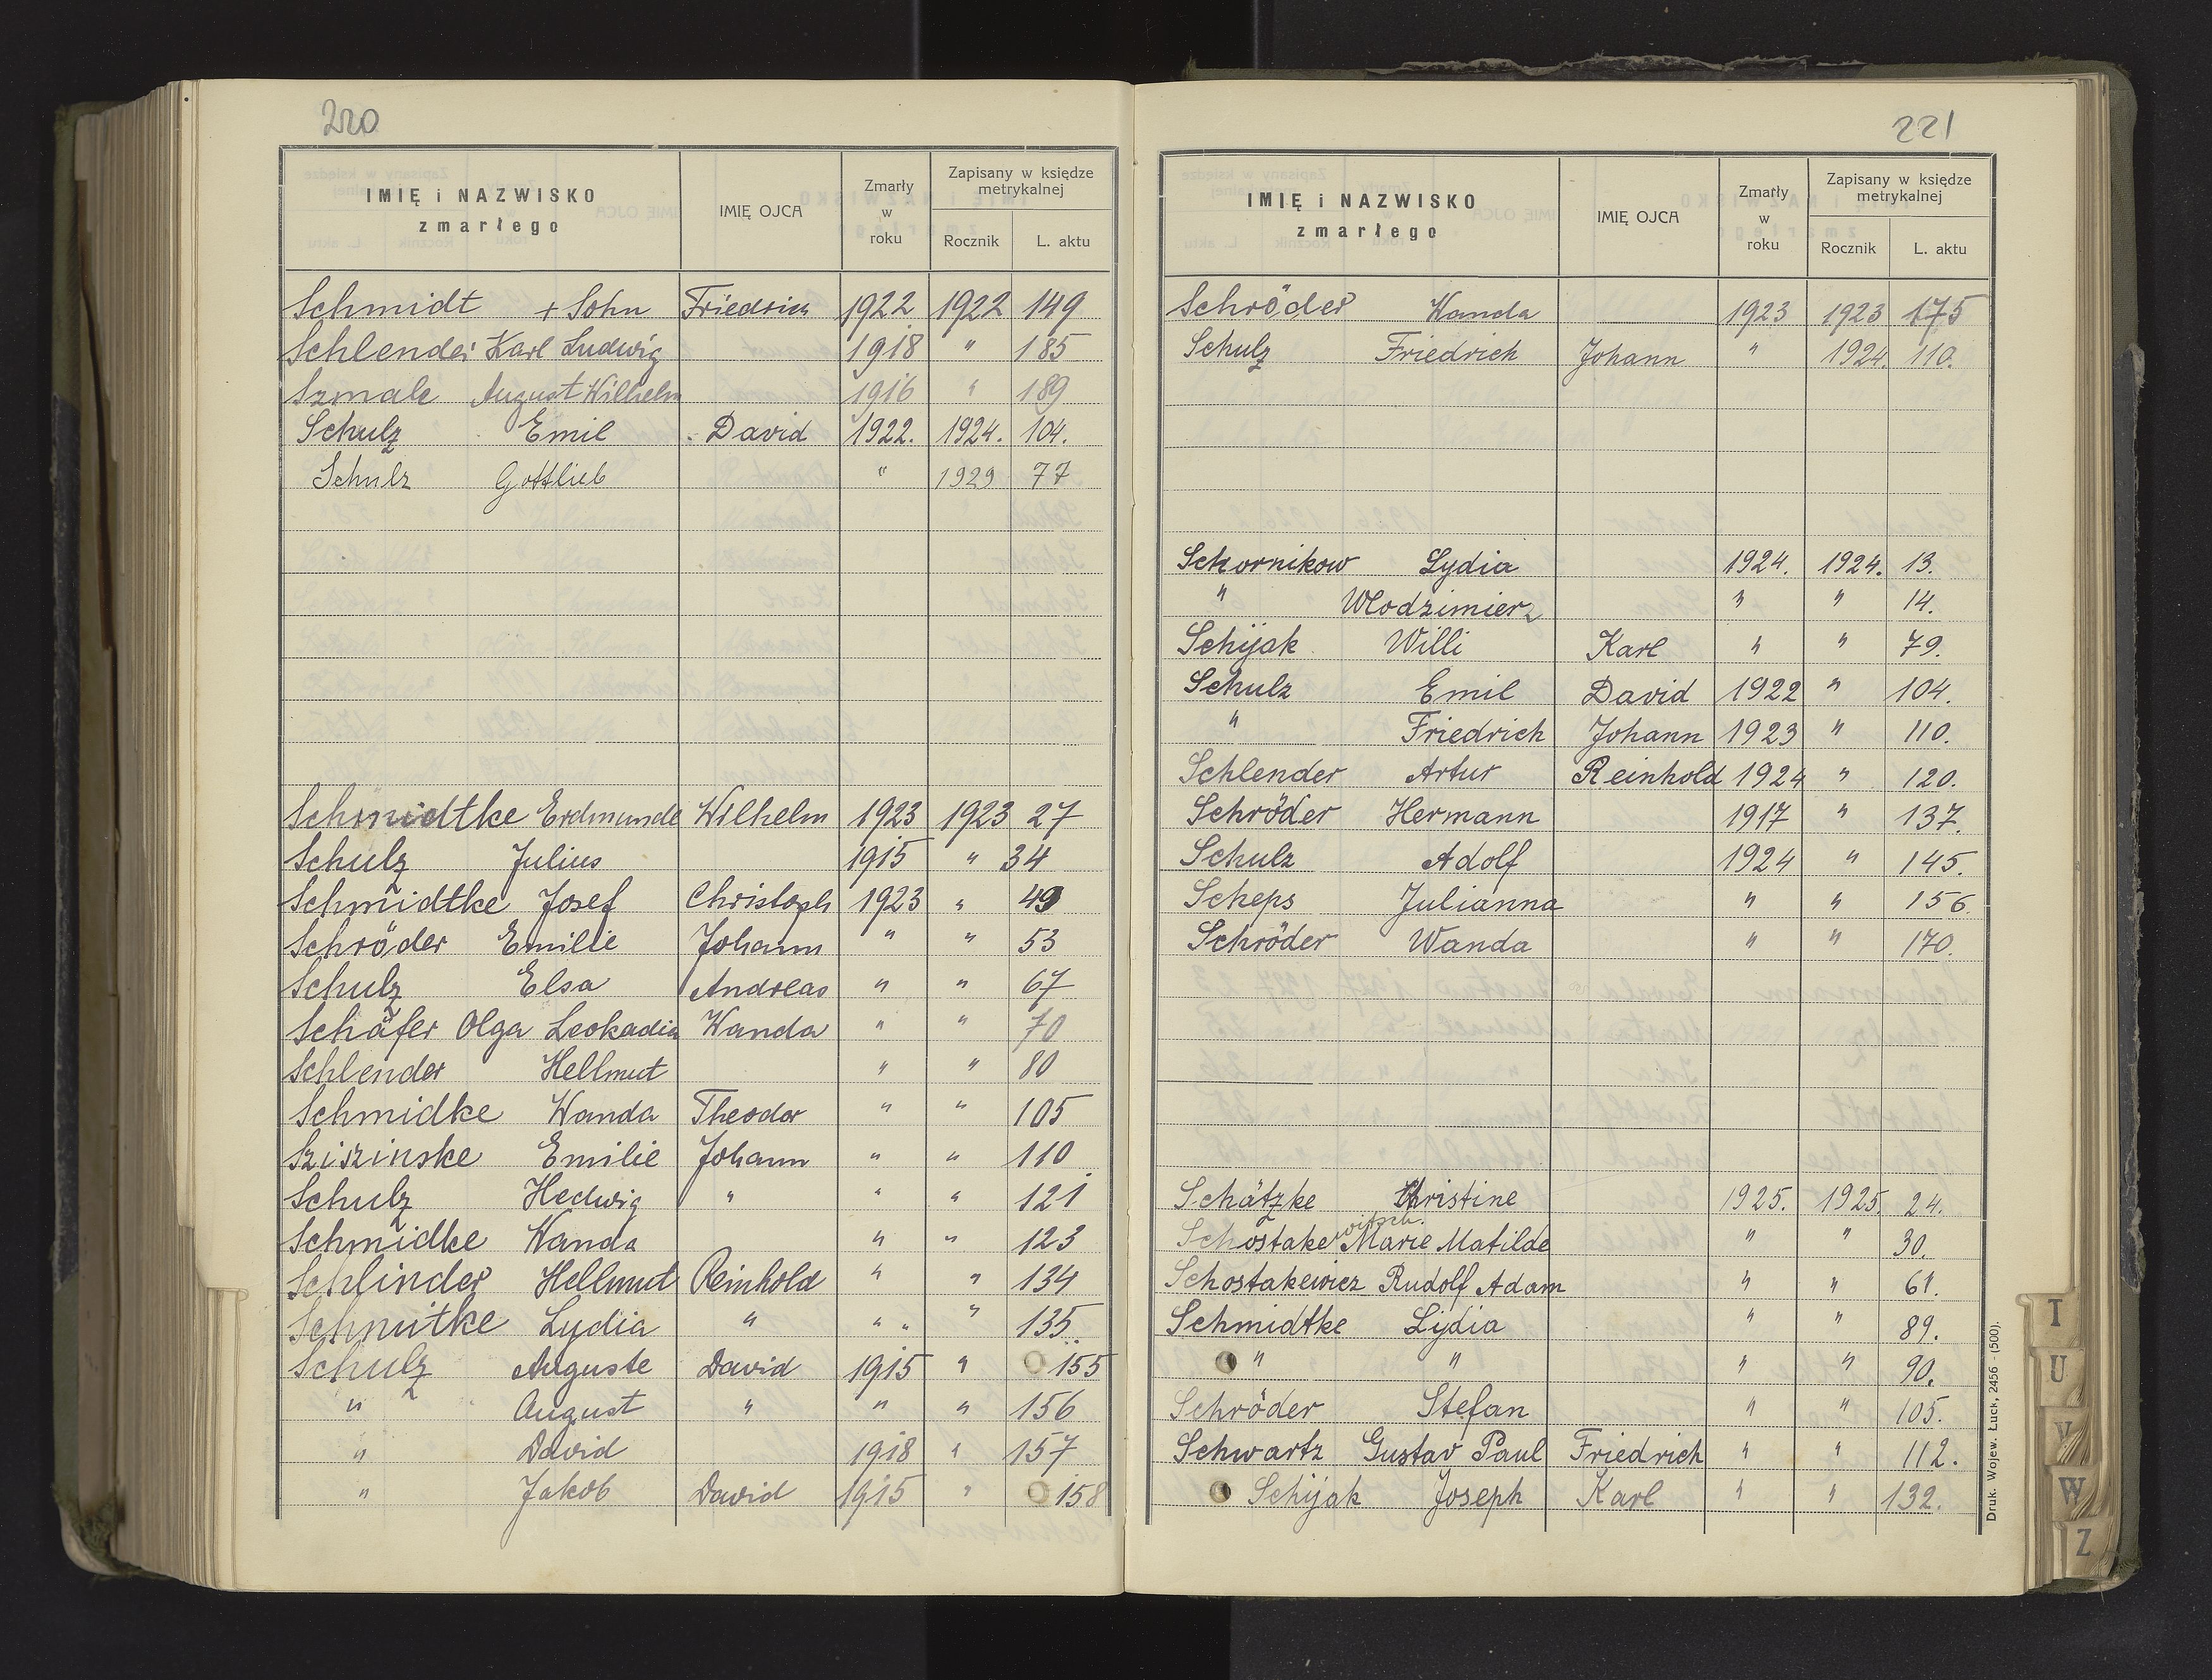 220
IMIĘ i NAZWISKO zmarłego IMIĘ OJCA Zmarły w roku Zapisany w księdze metrykalnej Rocznik L. aktu
Schmidt + Sohn Friedrich 1922 1922 149
Schlender Karl Ludwig 1918 " 185
Szmale August Wilhelm 1916 " 189
Schulz Emil David 1922. 1924. 104.
Schulz Gottlieb " 1929 77
Schmidtke Erdmunde Wilhelm 1923 1923 27
Schulz Julius 1915 " 34
Schmidtke Josef Christoph 1923 " 49
Schröder Emilie Johann " " 53
Schulz Elsa Andreas " " 67
Schäfer Olga Leokadia Wanda " " 70
Schlender Hellmut " " 80
Schmidke Wanda Theodor " " 105
Sziszinske Emilie Johann " " 110
Schulz Hedwig " " " 121
Schmidke Wanda " " 123
Schlinder Hellmut Reinhold " " 134
Schmitke Lydia " " " " 135.
Schulz Auguste David 1915 " 155
" August " " " 156
" David 1918 " 157
" Jakob David 1915 " 158
221
IMIĘ i NAZWISKO zmarłego IMIĘ OJCA Zmarły w roku Zapisany w księdze metrykalnej Rocznik L. aktu
Schröder Wanda 1923 1923 175
Schulz Friedrich Johann " 1924. 110.
Schornikow Lydia 1924. 1924. 13.
" Włodzimierz " " 14.
Schijak Willi Karl " " 79.
Schulz Emil David 1922 " 104.
" Friedrich Johann 1923 " 110.
Schlender Artur Reinhold 1924 " 120.
Schröder Hermann 1917 " 137.
Schulz Adolf 1924 " 145.
Scheps Julianna " " 156.
Schröder Wanda " " 170.
Schätzke Christine 1925. 1925. 24.
Schostakewitsch. Marie Matilde " " 30.
Schostakewicz Rudolf Adam " " 61.
Schmidtke Lydia " " 89.
" " " " 90.
Schröder Stefan " " 105.
Schwartz Gustav Paul Friedrich " " 112.
Schijak Joseph Karl " " 132.
Druk. Wojew. Łuck, 2456 - (500).
T
U
V
W
Z